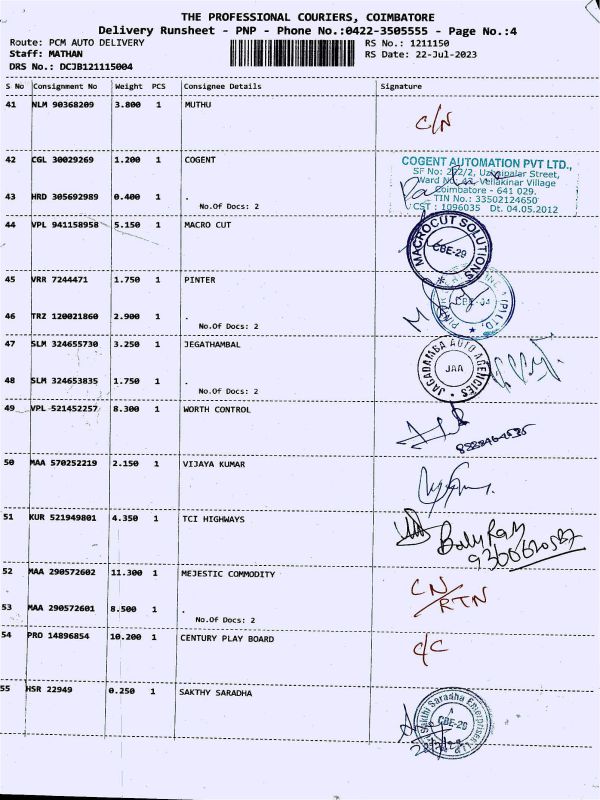 THE PROFESSIONAL COURIERS, COIMBATORE
Delivery Runsheet - PNP - Phone No.:0422-3505555 - Page No.:4
Route: PCM AUTO DELIVERY RS No.: 1211150
Staff: MATHAN RS Date: 22-Jul-2023
DRS No.: DCJB121115004
S No Consignment No Weight PCS Consignee Details Signature
41 NLM 90368209 3.800 1 MUTHU
C/N
42 CGL 30029269 1.200 1 COGENT
COGENT AUTOMATION PVT LTD.,
SF No: 222/2, Uzhaipalar Street,
Ward No: 42, Vellakinar Village
Coimbatore - 641 029.
TIN No.: 33502124650
CST : 1096035 Dt. 04.05.2012
43 HRD 305692989 0.400 1 .
No.Of Docs: 2
44 VPL 941158958 5.150 1 MACRO CUT
MACROCUT SOLUTIONS
CBE-29
45 VRR 7244471 1.750 1 PINTER
46 TRZ 120021860 2.900 1 .
No.Of Docs: 2
(P) LTD.
47 SLM 324655730 3.250 1 JEGATHAMBAL
JAGADAMBA AUTO AGENCIES
JAA
48 SLM 324653835 1.750 1 .
No.Of Docs: 2
49 VPL 521452257 8.300 1 WORTH CONTROL
50 MAA 570252219 2.150 1 VIJAYA KUMAR
51 KUR 521949801 4.350 1 TCI HIGHWAYS
52 MAA 290572602 11.300 1 MEJESTIC COMMODITY
CN/RTN
53 MAA 290572601 8.500 1 .
No.Of Docs: 2
54 PRO 14896854 10.200 1 CENTURY PLAY BOARD
C/C
55 HSR 22949 0.250 1 SAKTHY SARADHA
Sakthi Saradha Enterprises
CBE-29